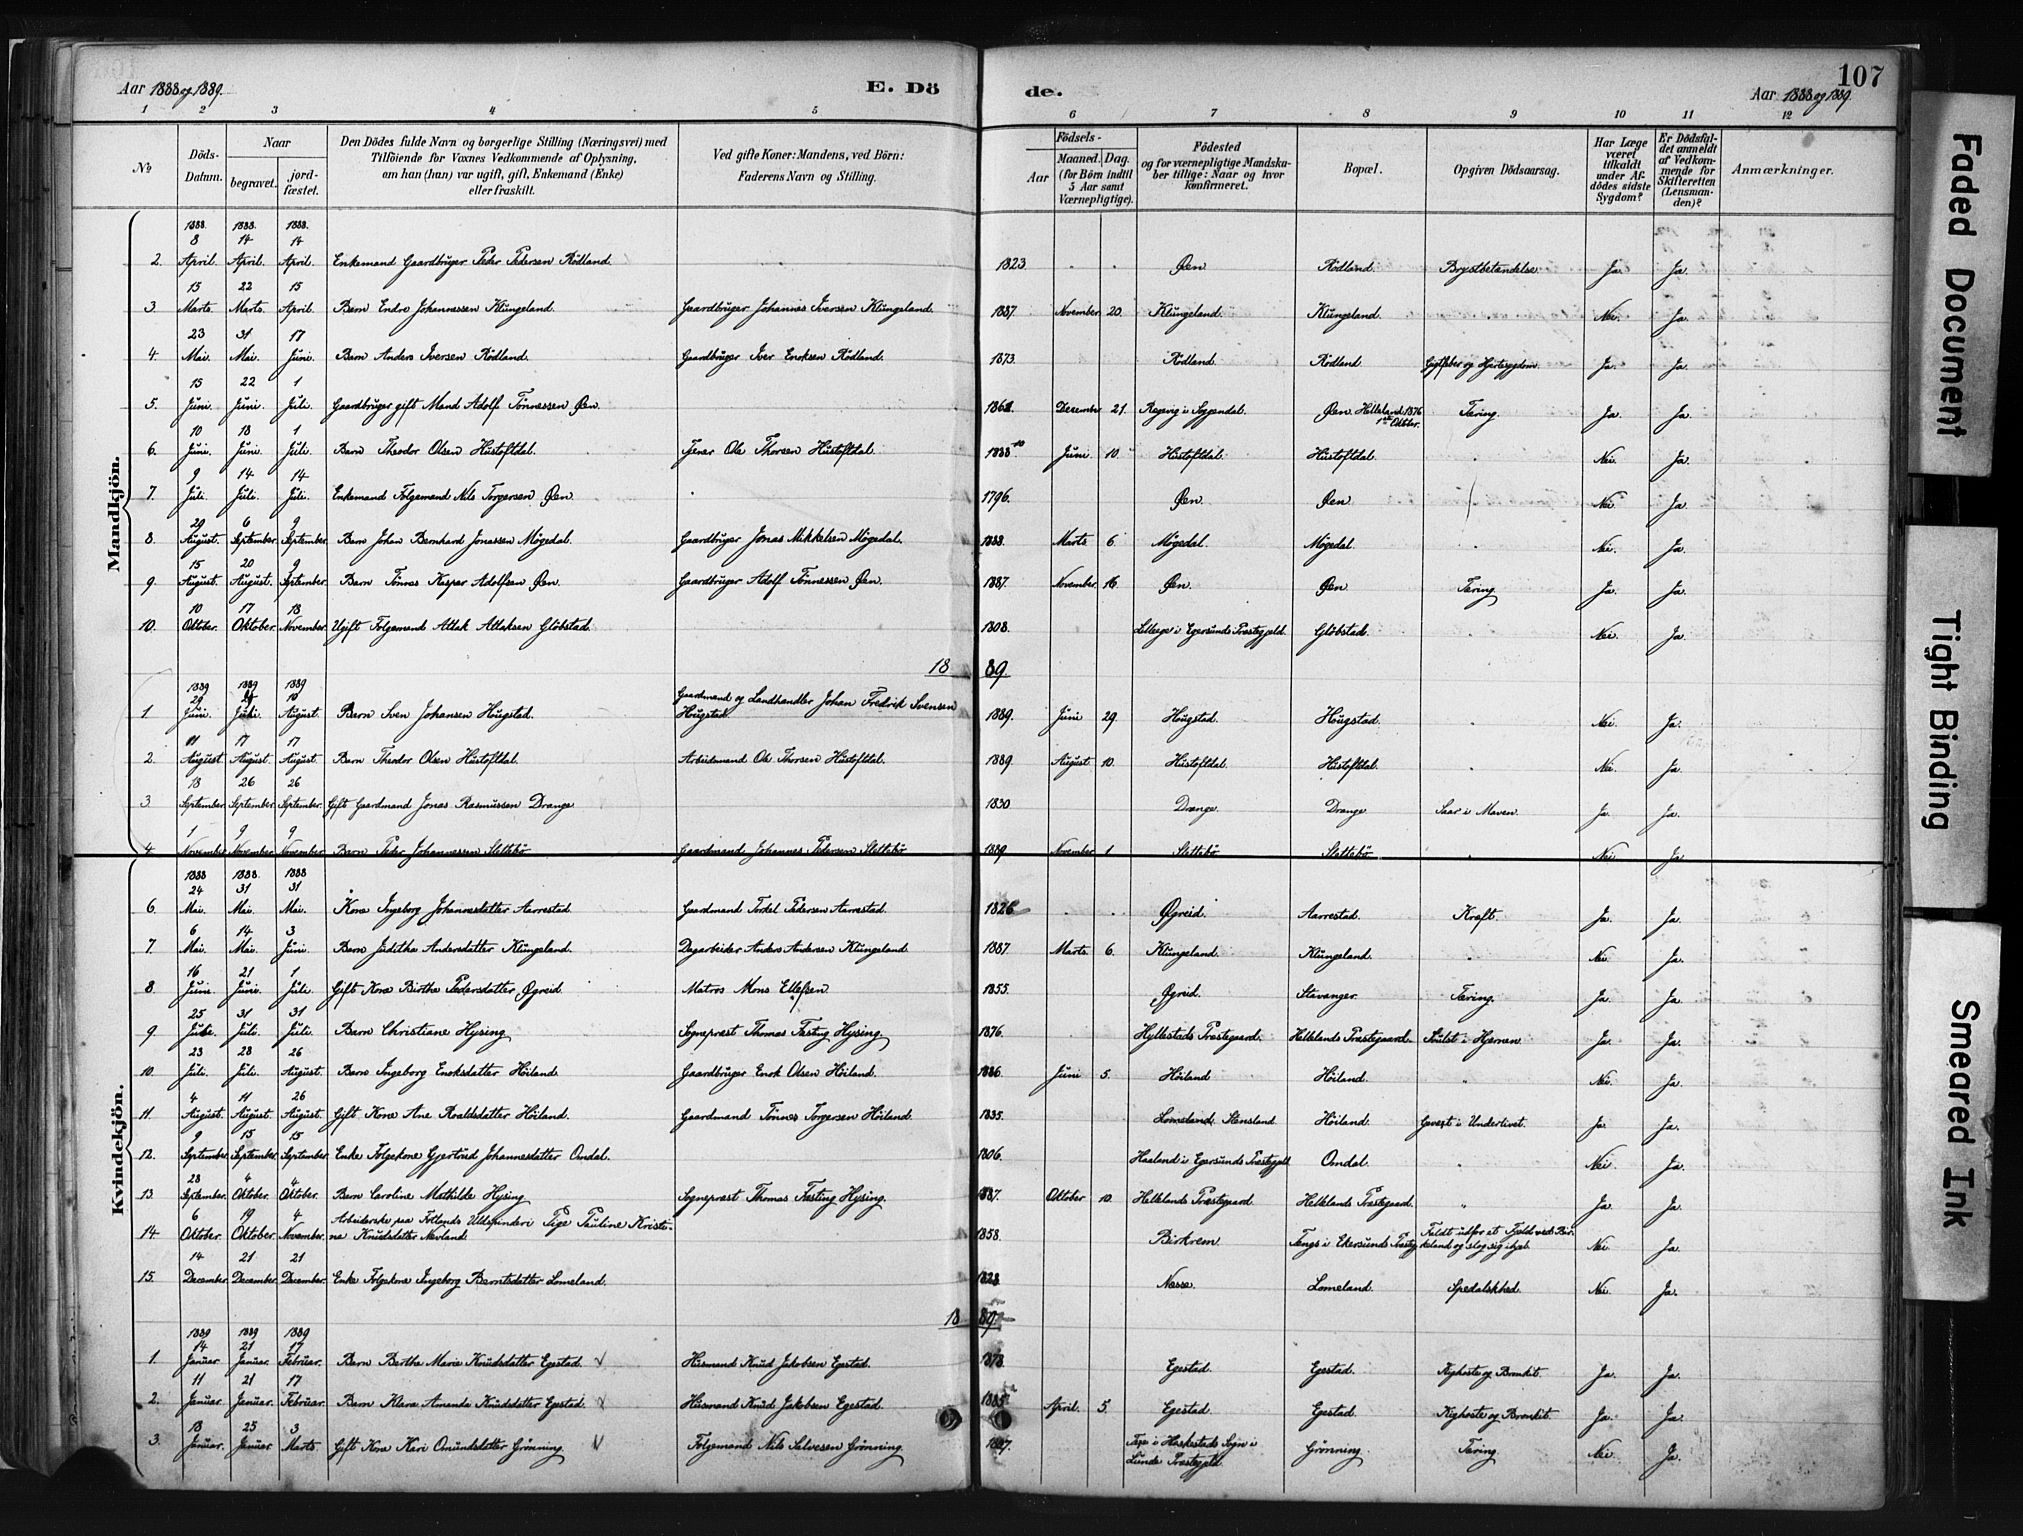 107
Aar 1888 og 1889. E. Dö de. Aar 1888 og 1889.
1 2 3 4 5 6 7 8 9 10 11 12
No
Döds-Datum.
Naar
begravet.
jord-fæstet.
Den Dödes fulde Navn og borgerlige Stilling (Næringsvei) med
Tilföiende for Voxnes Vedkommende af Oplysning,
om han (hun) var ugift, gift, Enkemand (Enke)
eller fraskilt.
Ved gifte Koner: Mandens, ved Börn:
Faderens Navn og Stilling.
Födsels-
Aar
Maaned. Dag.
(for Börn indtil
5 Aar samt
Værnepligtige).
Födested
og for værnepligtige Mandska-
ber tillige: Naar og hvor
konfirmeret.
Bopæl.
Opgiven Dödsaarsag.
Har Læge
været
tilkaldt
under Af-
dödes sidste
Sygdom?
Er Dödsfal-
det anmeldt
af Vedkom-
mende for
Skifteretten
(Lensman-
den)?
Anmærkninger.
Mandkjön.
1888. 1888. 1888.
8 14 14
2. April. April. April. Enkemand Gaardbruger Peder Pedersen Rødland. 1823 Øen Rødland. Brystbetændelse Ja Ja.
15 22 15
3. Marts. Marts. April. Barn Endre Johannessen Klungeland. Gaardbruger Johannes Iversen Klungeland. 1887. November 20. Klungeland. Klungeland. Nei. Ja.
23 31 17
4. Mai. Mai. Juni. Barn Anders Iversen Rødland. Gaardbruger Iver Enoksen Rødland. 1873. Rødland. Rødland Gigtfeber og Hjertesygdom. Ja. Ja.
15 22 1
5. Juni. Juni. Juli. Gaardbruger gift Mand Adolf Tønnessen Øen. 1861. Dezember 21. Regeing i Soggendal. Øen. Helleland 1876 1ste Oktober. Tæring. Ja. Ja.
10 18 1
6. Juni. Juni. Juli. Barn Theodor Olsen Hustoftdal. Fjerer Ole Thorsen Hustoftdal. 1888 Juni 10. Hustoftdal. Hustoftdal. Nei. Ja.
9 14 14
7. Juli. Juli. Juli. Enkemand Folgemand Nils Torgersen Øen. 1796. Øen. Øen. Nei. Ja.
29 6 9
8. August. September. September. Barn Johan Bernhard Jonassen Møgedal. Gaardbruger Jonas Mikkelsen Møgedal. 1883. Marts 6. Møgedal. Møgedal. Nei. Ja.
15 20 9
9. August. August. September. Barn Tønnes Kasper Adolfsen Øen. Gaardbruger Adolf Tønnessen Øen. 1887. November. 16. Øen. Øen. Tæring Ja. Ja.
10 17 18
10. Oktober. Oktober. November. Ugift Folgemand Atlak Atlaksen Gløbstad. 1808. i Egersunds Præstegjeld. Gløbstad. Nei. Ja.
1889
1889 1889 1889
29 10
1 Juni. August. Barn Sven Johansen Hougstad. Gaardmand og Landhandler Johan Fredrik Svensen
Hougstad. 1889. Juni 29. Hougstad. Hougstad. Nei. Ja.
11 17 17
2. August August. August. Barn Theodor Olsen Hustoftdal. Arbeidsmand Ole Thorsen Hustoftdal. 1889. August 10. Hustoftdal. Hustoftdal. Nei. Ja
18 26 26
3 September. September. September. Gift Gaardmand Jonas Rasmussen Drange 1830 Drange. Drange Saar i Maven. Ja. Ja.
1 9 9
4. November November November. Barn Peder Johannessen Slettebø Gaardmand Johannes Pedersen Slettebø 1889 November 1 Slettebø Slettebø Nei Ja
Kvindekjön.
1888 1888. 1888
24 31 31
6. Mai. Mai. Mai. Kone Ingeborg Johannesdatter Aarrestad Gaardmand Torkel Pedersen Aarrestad. 1826 Øgreid. Aarrestad. Kræft Ja. Ja.
6 14 3
7 Mai. Mai. Juni. Barn Juditha Andersdatter Klungeland. Dagarbeider Anders Andersen Klungeland. 1887. Marts. 6. Klungeland. Klungeland. Nei. Ja.
16 21 1
8. Juni. Juni. Juli. Gift Kone Birthe Pedersdatter Øgreid. Matros Mons Ellefsen. 1855. Øgreid. Stavanger. Tæring. Ja. Ja.
25 31 31
9. Juli. Juli. Juli. Barn Christiane Hysing Sogneprest Thomas Fasting Hysing. 1876. Hyllestads Præstegaard. Hellelands Præstegaard. Svulst i Hjernen. Ja. Ja.
23 28 26
10. Juli. Juli. August. Barn Ingeborg Enoksdatter Høiland. Gaardbruger Enok Olsen Høiland. 1886. Juni 5. Høiland. Høiland. Nei. Ja
4 11 26
11. August. August. August. Gift Kone Ane Roaldsdatter Høiland. Gaardmand Tønnes Torgersen Høiland. 1835. Lomeland. Stensland Høiland. i Underlivet. Ja. Ja.
9 15 15
12. September. September. September. Enke Folgekone Gjertrud Johannesdatter Omdal. 1806. Haaland i Egersunds Præstegjeld Omdal. Nei Ja
28 4 4
13. September. Oktober. Oktober. Barn Caroline Mathilde Hysing Sogneprest Thomas Fasting Hysing. 1887. Oktober 10. Hellelands Præstegaard. Hellelands Præstegaard. Ja. Ja.
6 19 4
14. Oktober. Oktober. November. Arbeiderske paa Fotlands Uldspinderi Pige Pauline Kristi-
ne Knudsdatter Nevland 1858. Birkrem. Tengs i Ekersunds Præstegjeld. Faldt udfor et Fjeld ved Bir-
keland og slog sig ihjel. Nei. Ja.
14 21 21
15. December. December. December. Enke Folgekone Ingeborg Berntsdatter Lomeland. 1828 Nesse. Lomeland. Spedalskhed. Nei. Ja.
1889.
1889 1889 1889
14 21 17
1. Januar. Januar. Februar. Barn Berthe Marie Knudsdatter Egestad. Husmand Knud Jakobsen Egestad. 1878. Egestad. Egestad. Kighoste og Bronkit. Ja. Ja.
11 21 17
2. Januar. Januar. Februar. Barn Klara Amanda Knudsdatter Egestad. Husmand Knud Jakobsen Egestad. 1885. April. 5. Egestad. Egestad. Kighoste og Bronkit. Ja. Ja.
13 25 3
3. Januar. Januar Marts. Gift Kone Kari Omundsdatter Grønning. Folgemand Nils Salvesen Grønning. i Heskestads Sogn i
Lunde Præstegjeld Grønning. Tæring Nei. Ja.
Faded Document
Tight Binding
Smeared Ink